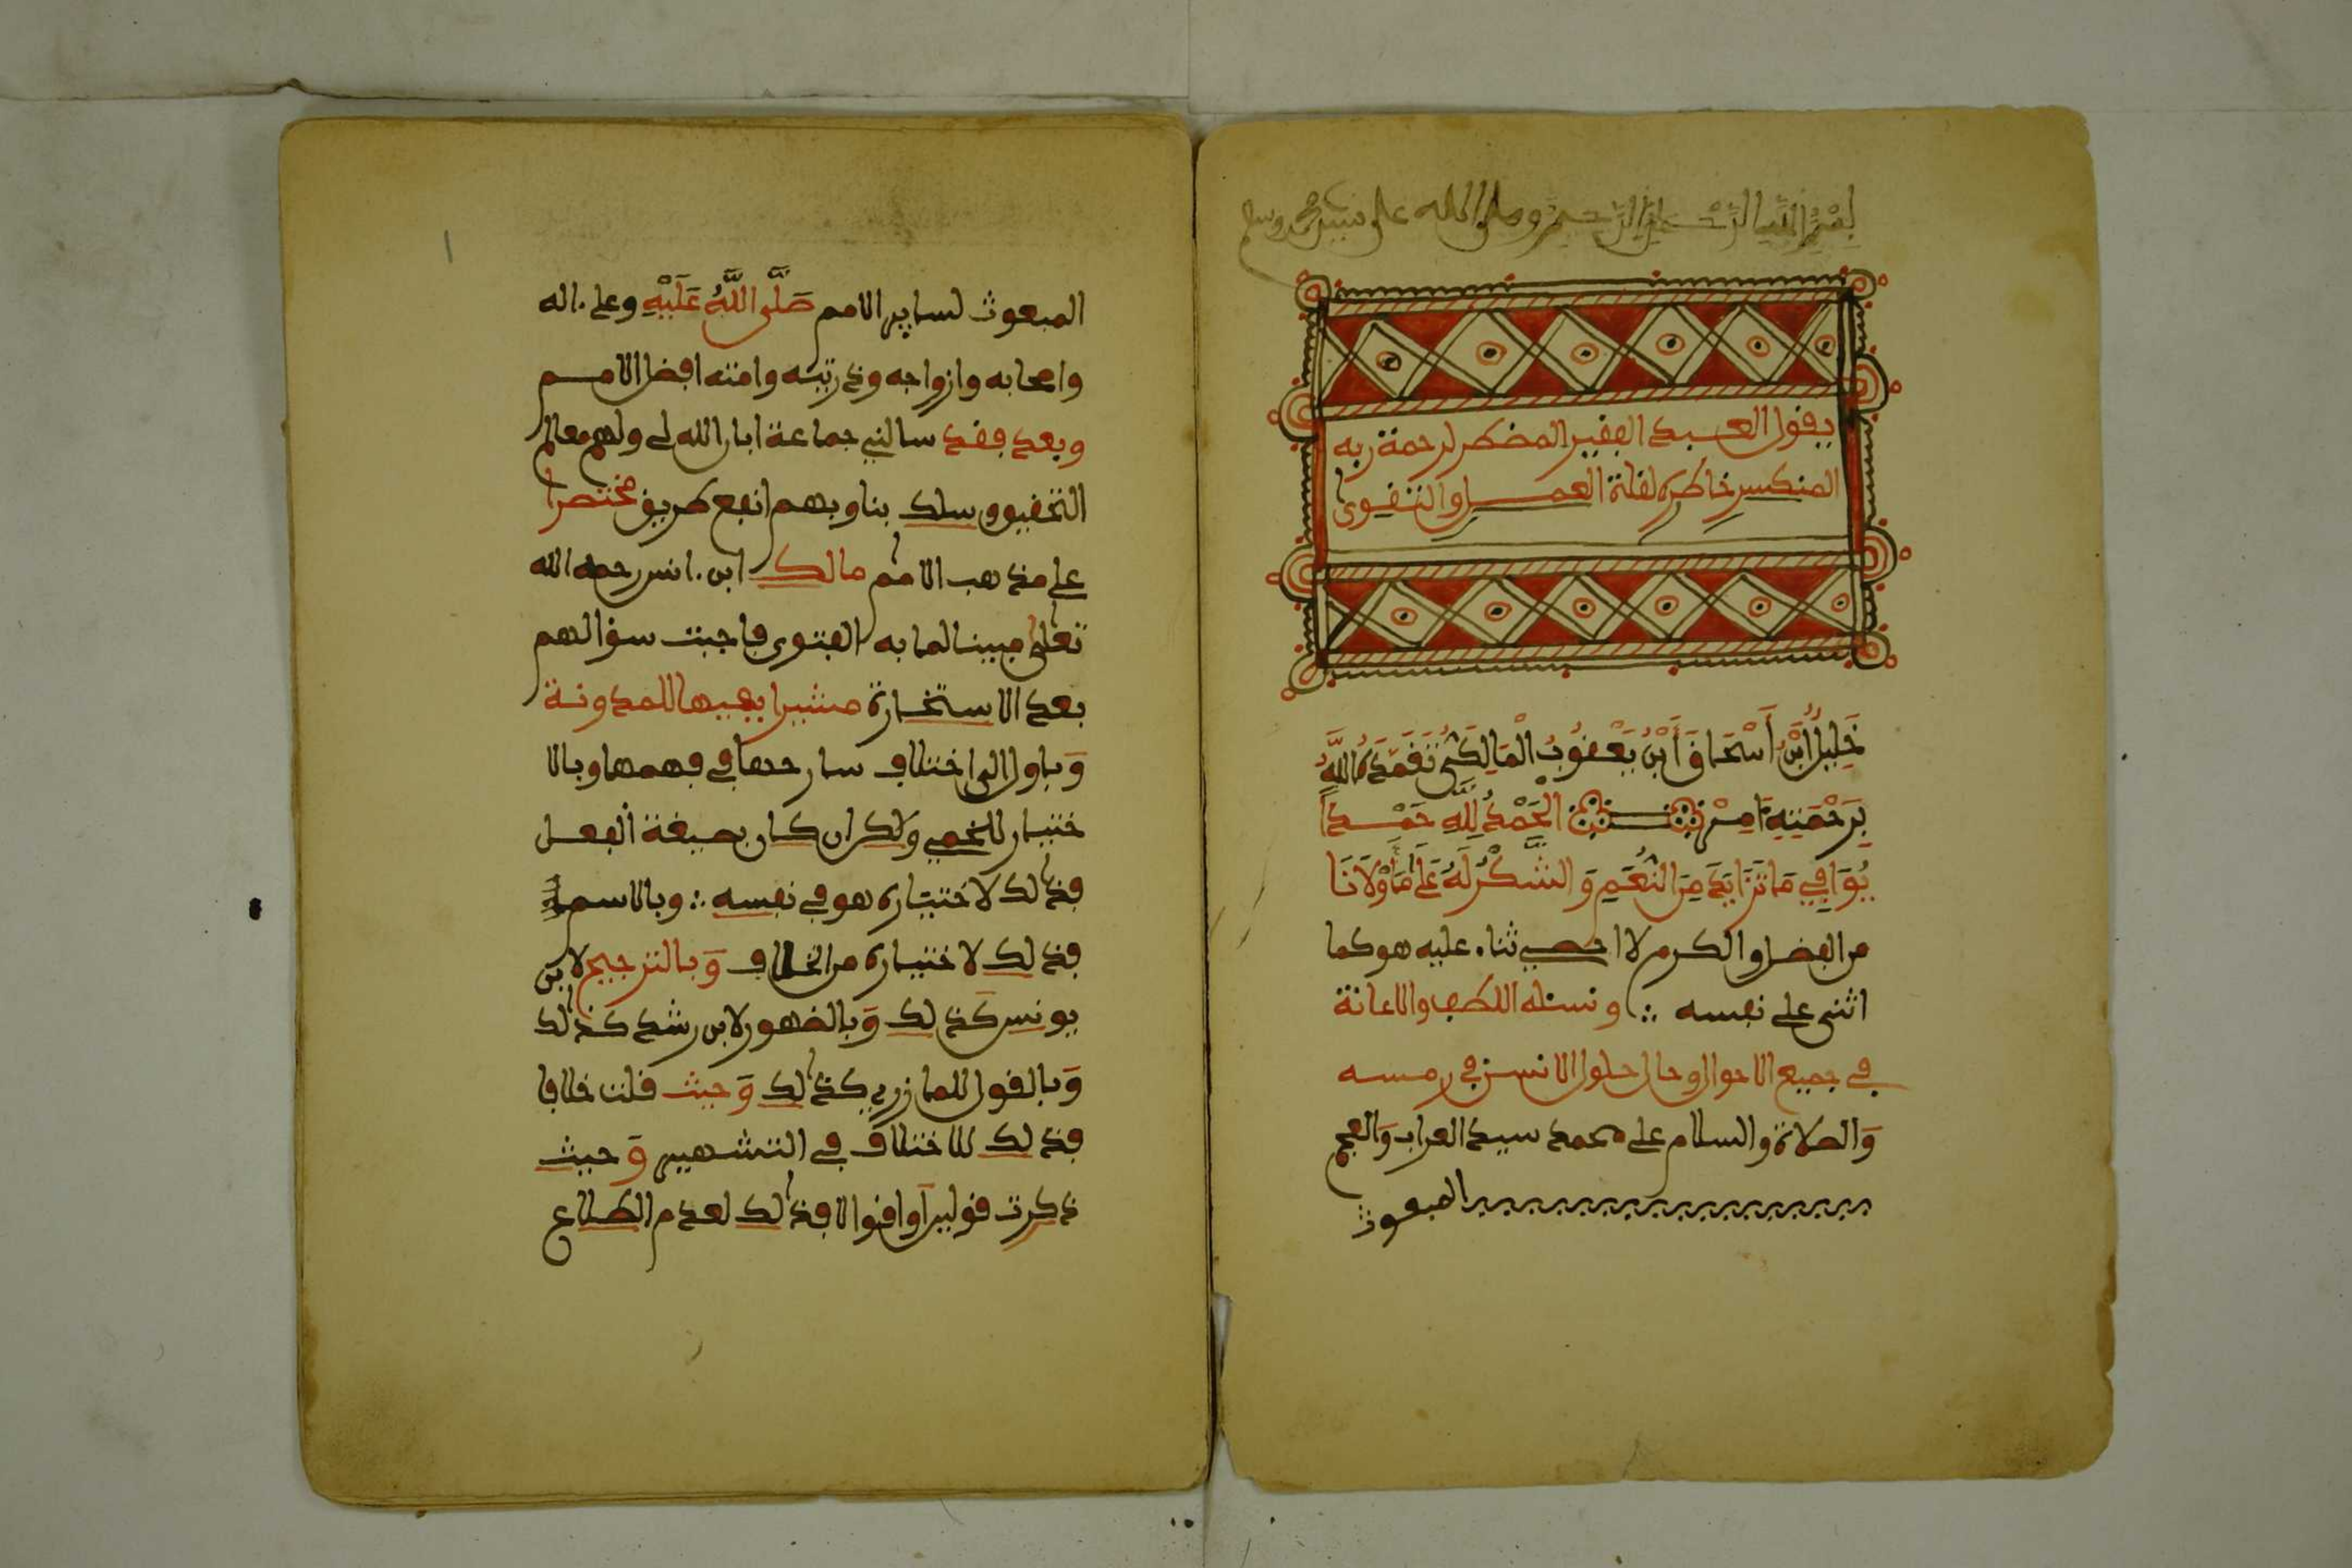 بِسْمِ اللَّهِ الرَّحْمَٰنِ الرَّحِيمِ وصلى الله على نبينا محمد وسلم
يقول العبد الفقير المضطر لرحمة ربه
المنكسر خاطره لقلة العمل والتقوى
خَلِيلُ ابْنُ أَسْحَاقَ أَبْنِ يَعْقُوبَ الْمَالِكِيُّ تَغَمَّدَهُ اللَّهُ
بِرَحْمَتِهِ ءَامِينْ الْحَمْدُ لِلَّهِ حَمْدًا
يُوَافِي مَا تَزَايَدَ مِنَ النِّعَمِ وَالشُّكْرُ لَهُ عَلَى مَا أَوْلَانَا
من الفضل والكرم لا احصي ثناء عليه هو كما
اثنى على نفسه ونسئله اللطف والاعانة
في جميع الاحوال وحال حلول الانسن في رمسه
وَالصلاة والسلام على محمد سيد العراب وَالعجم
المبعوث
المبعوث لساير الامم صَلَّى اللَّهُ عَلَيْهِ وعلى ءاله
واصحابه وازواجه وذريته وامته افضل الامم
وبعد فقد سالني جماعة ابان الله لي ولهم معالم
التحقيق وسلك بنا وبهم انفع طريق مختصرا
على مذهب الامام مالك ابن انس رحمه الله
تعلى مبينا لما به الفتوى فاجبت سؤالهم
بعد الاستخارة مشيرا بفيها للمدونة
وَباول الى اختلاف سارحها في فهمها وبالا
ختيار للخمي ولكن ان كان بصيغة الفعل
فذلك لاختياره هو في نفسه وبالاسم
فذلك لاختياره من الخلاف وَبالترجيح لابن
يونس كذلك وَبالضهور لابن رشد كذلك
وَبالقول للمازري كذلك وَحيث قلت خلافا
فذلك للاختلاف في التشهير وَحيث
ذكرت قولين أو اقوالا فذلك لعدم اطلاع